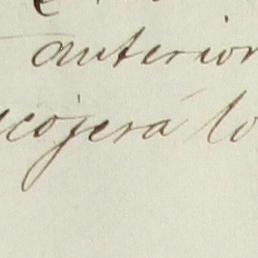 anterior
cojerá lo